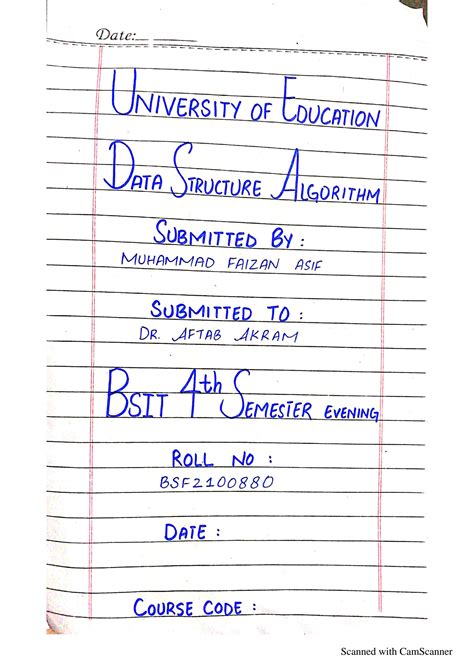 Date:
UNIVERSITY OF EDUCATION
DATA STRUCTURE ALGORITHM
SUBMITTED BY :
MUHAMMAD FAIZAN ASIF
SUBMITTED TO :
DR. AFTAB AKRAM
BSIT 4th SEMESTER EVENING
ROLL NO :
BSF2100880
DATE :
COURSE CODE :
Scanned with CamScanner